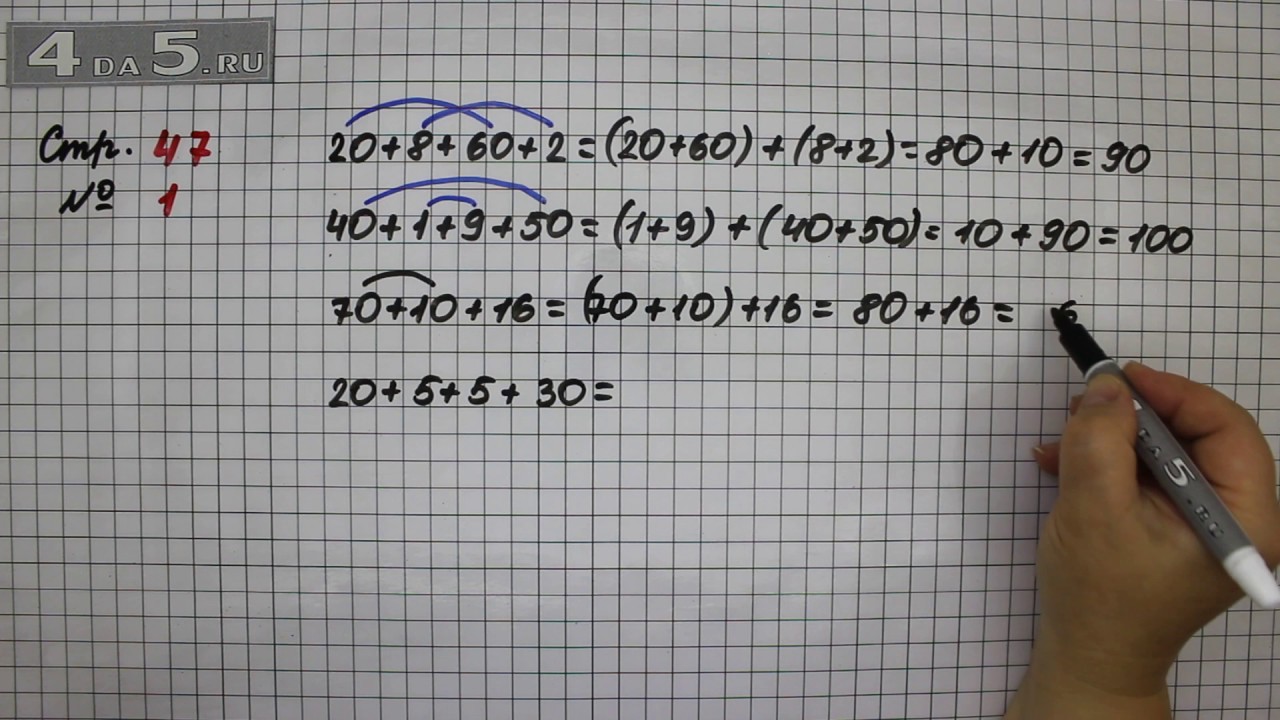 4 DA 5.RU
Стр. 47
№ 1
20+8+60+2=(20+60)+(8+2)=80+10=90
40+1+9+50=(1+9)+(40+50)=10+90=100
70+10+16=(70+10)+16=80+16= 6
20+5+5+30=